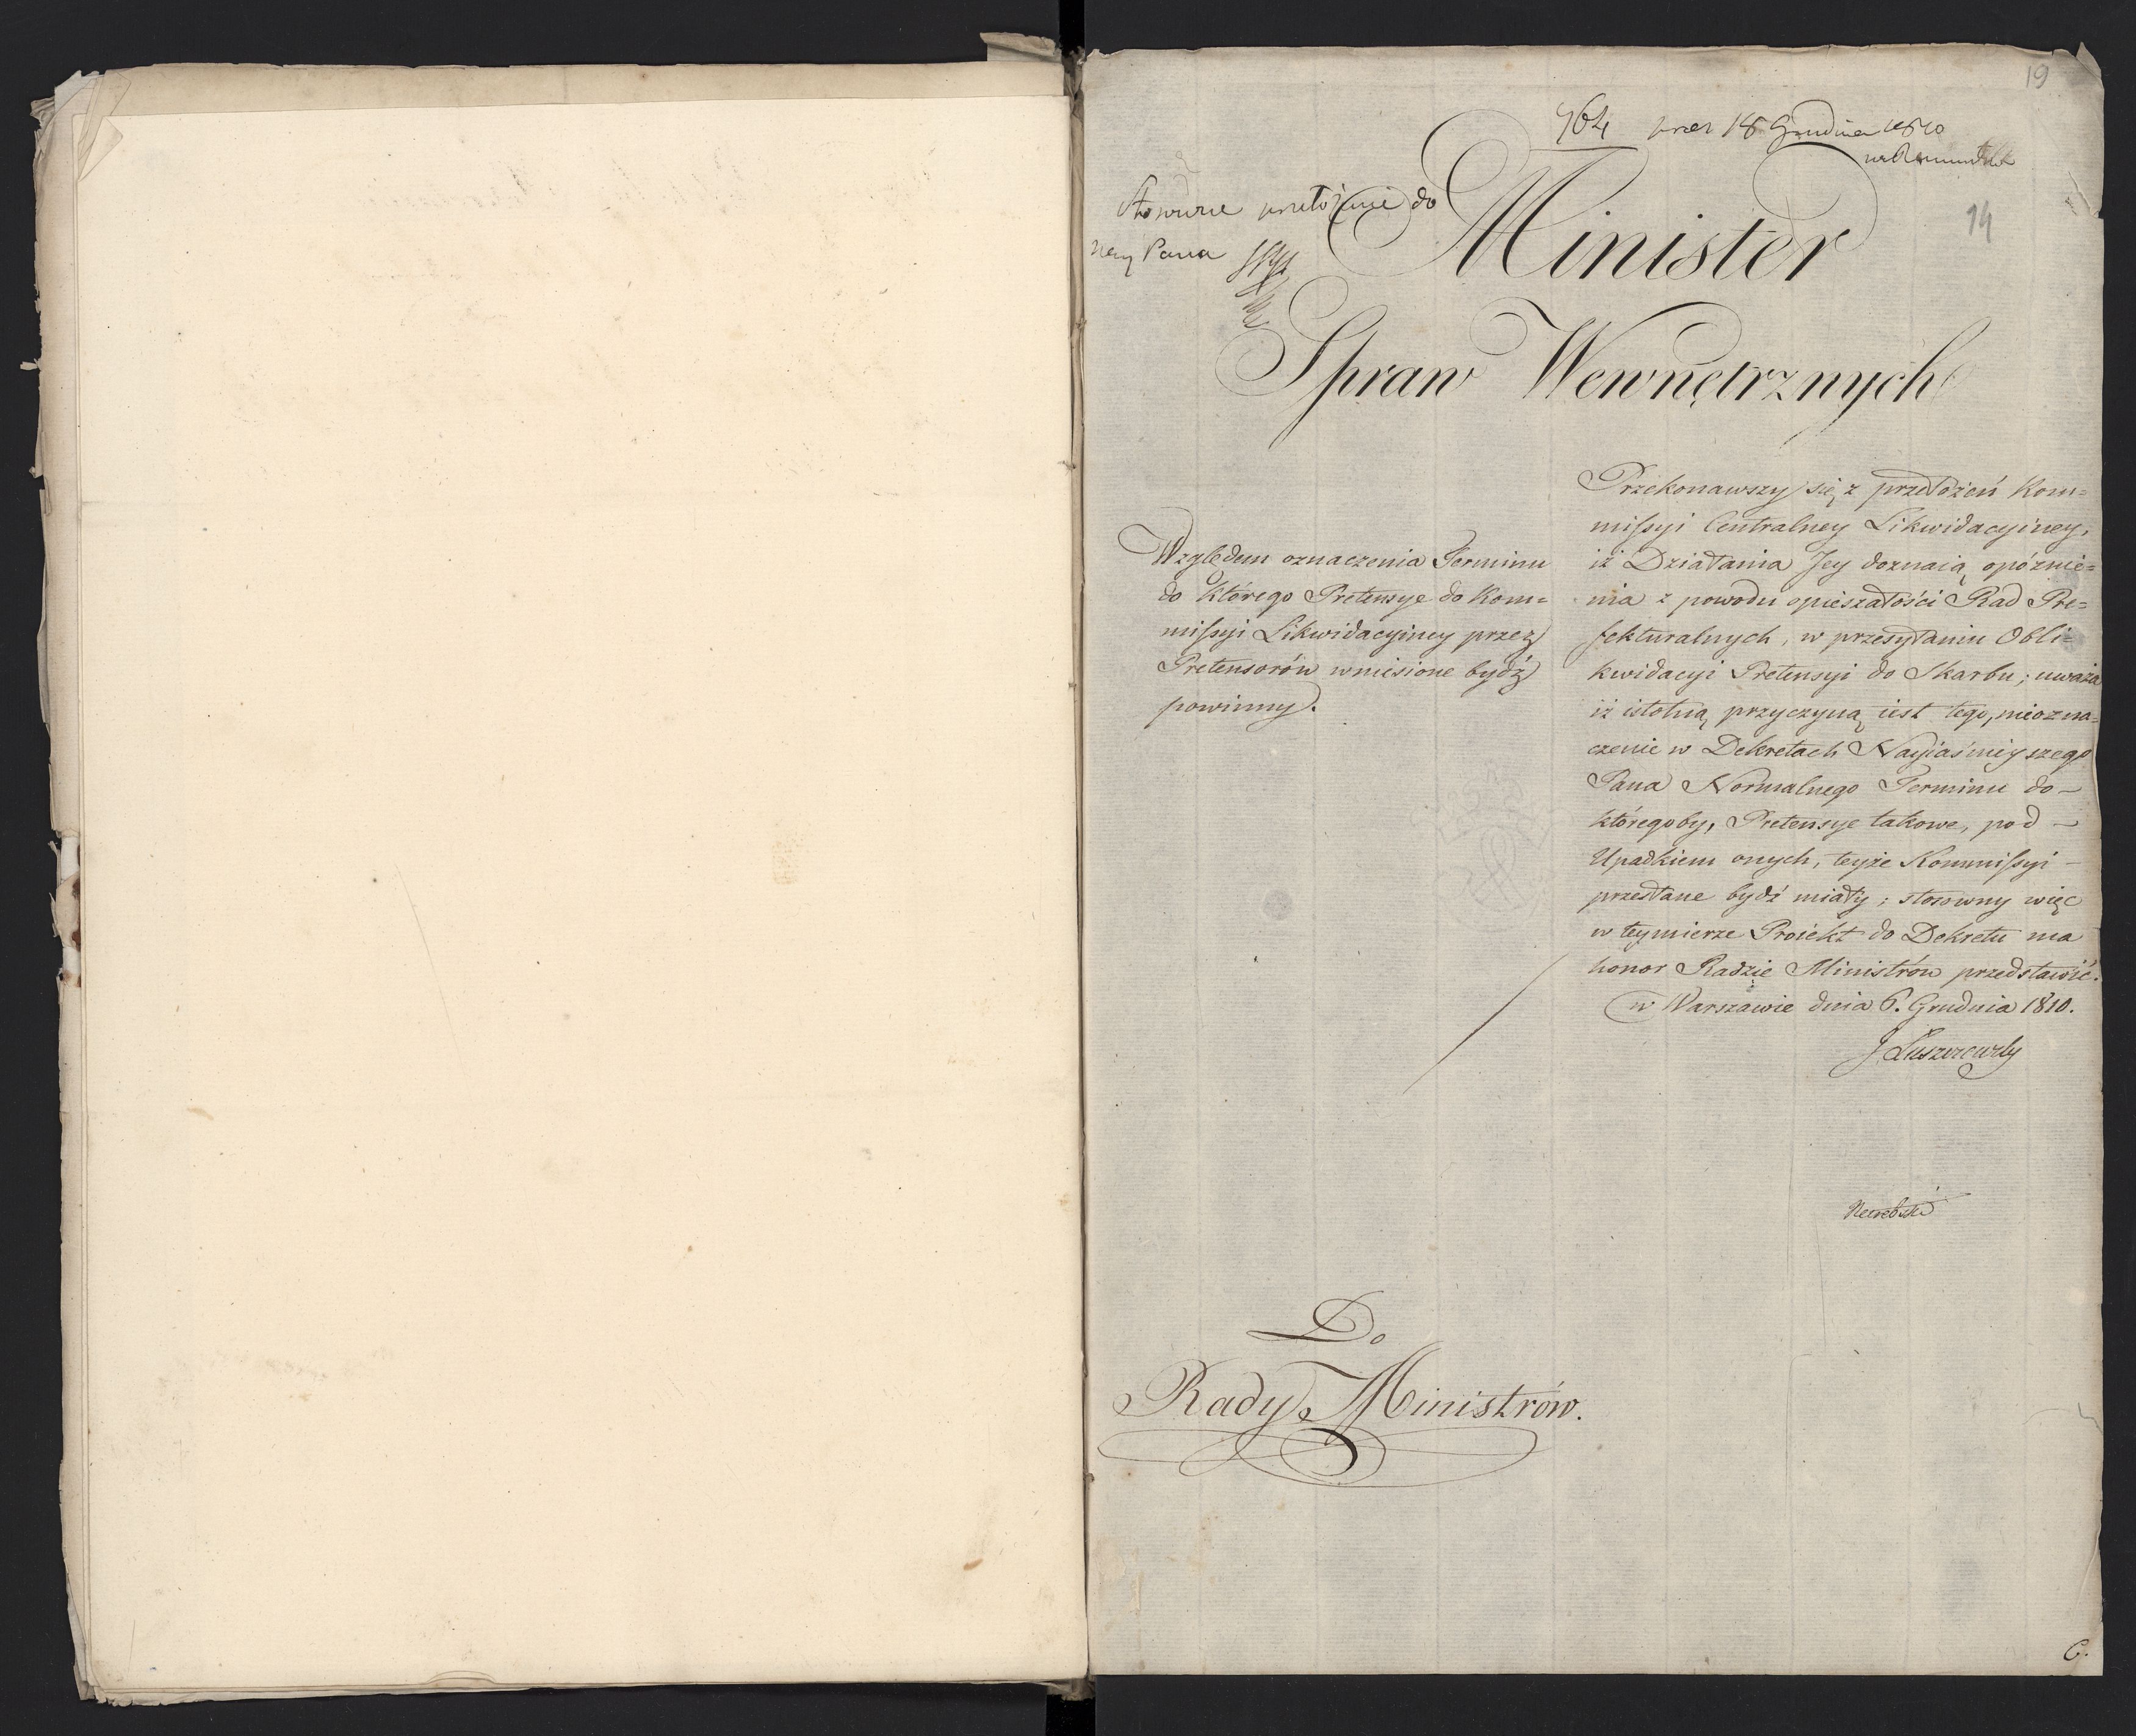 19
764 prez 18 Grudnia 1810
Stosowne przełożenie do
Nayj Pana
14
Minister
Spraw Wewnętrznych
Względem oznaczenia Terminu
do którego Pretensye do Kom=
missyi Likwidacyiney przez
Pretensorów wniesione bydź
powinny.
Przekonawszy się z przełożeń Kom=
missyi Centralney Likwidacyiney,
iż Działania Jey doznaią opóźnie=
nia z powodu opieszałości Rad Pre=
fekturalnych, w przesyłaniu Obli=
kwidacyi Pretensyi do Skarbu; uważa
iż istotną przyczyną iest tego, nieozna=
czenie w Dekretach Nayiaśnieyszego
Pana Normalnego Terminu do
któregoby, Pretensye takowe, pod
Upadkiem onych, teyże Kommissyi
przesłane bydź miały; stosowny więc
w teymierze Proiekt do Dekretu ma
honor Radzie Ministrów przedstawić.
w Warszawie dnia 6. Grudnia 1810.
J Łuszczewski
Do
Rady Ministrów.
C.